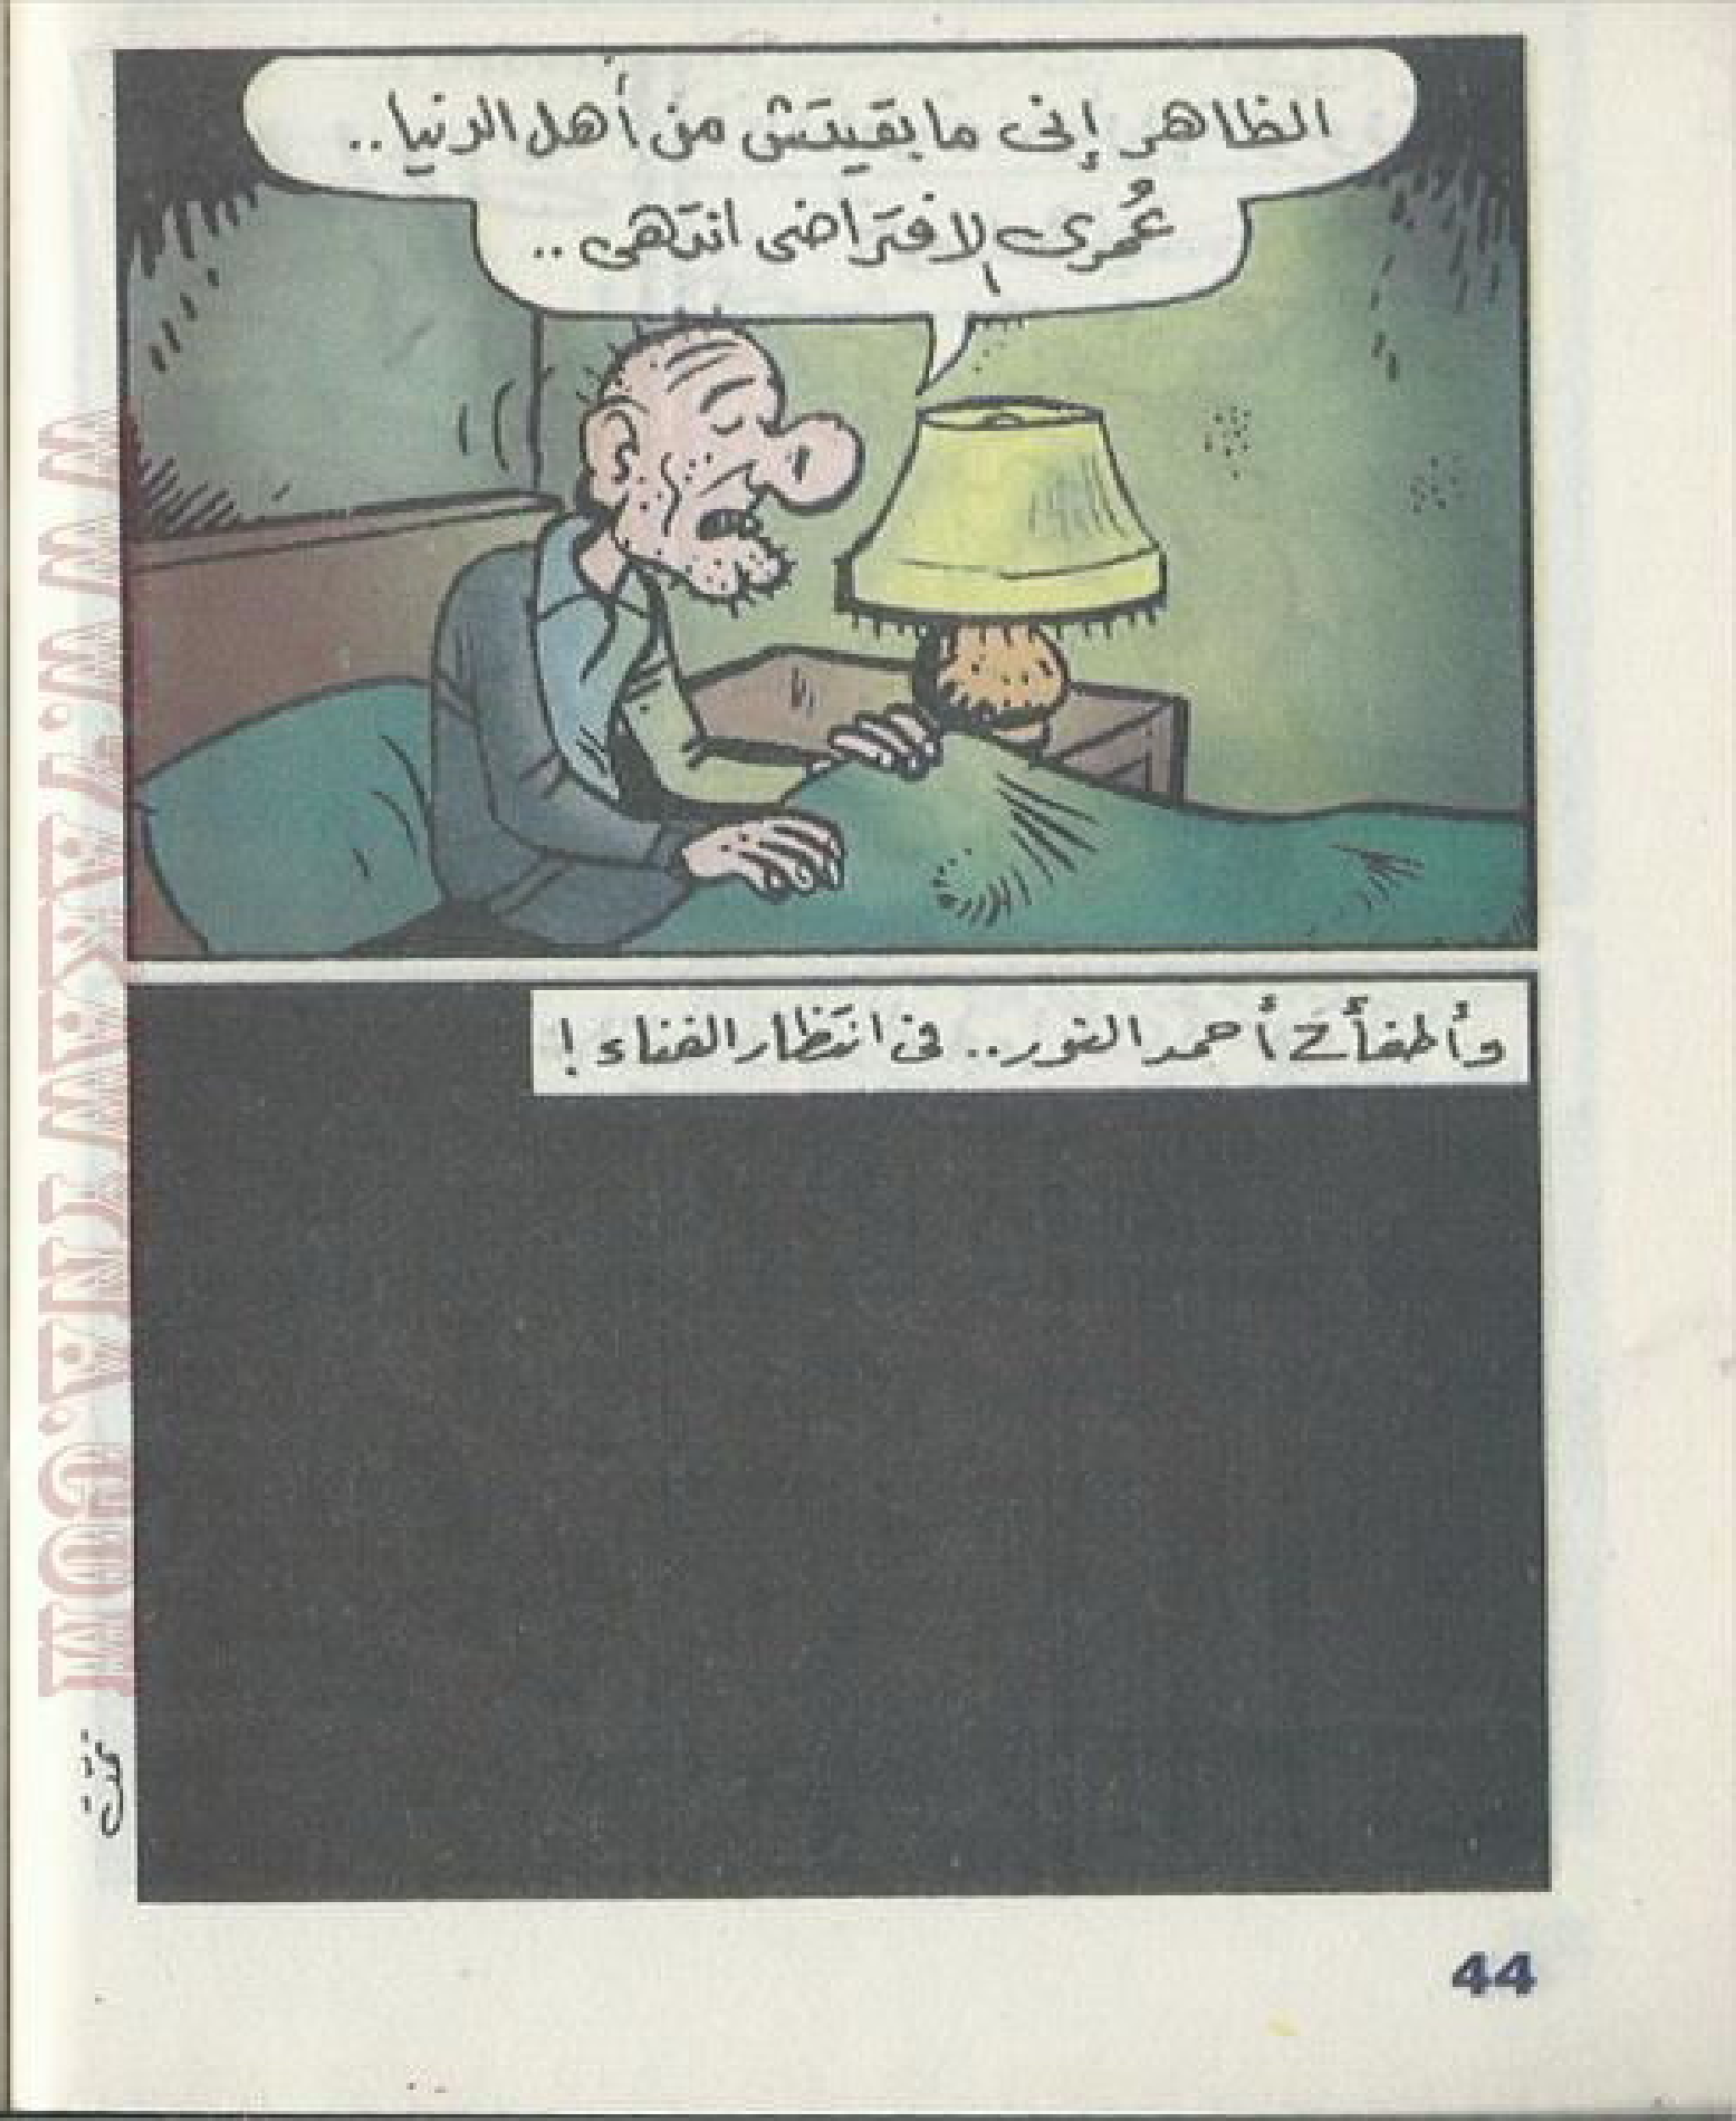 الظاهر إنى ما بقيتش من أهل الدنيا..
عُمرى الإفتراضى انتهى ..
وأطفأ أحمد النور.. فى انتظار الفناء !
تمت
44